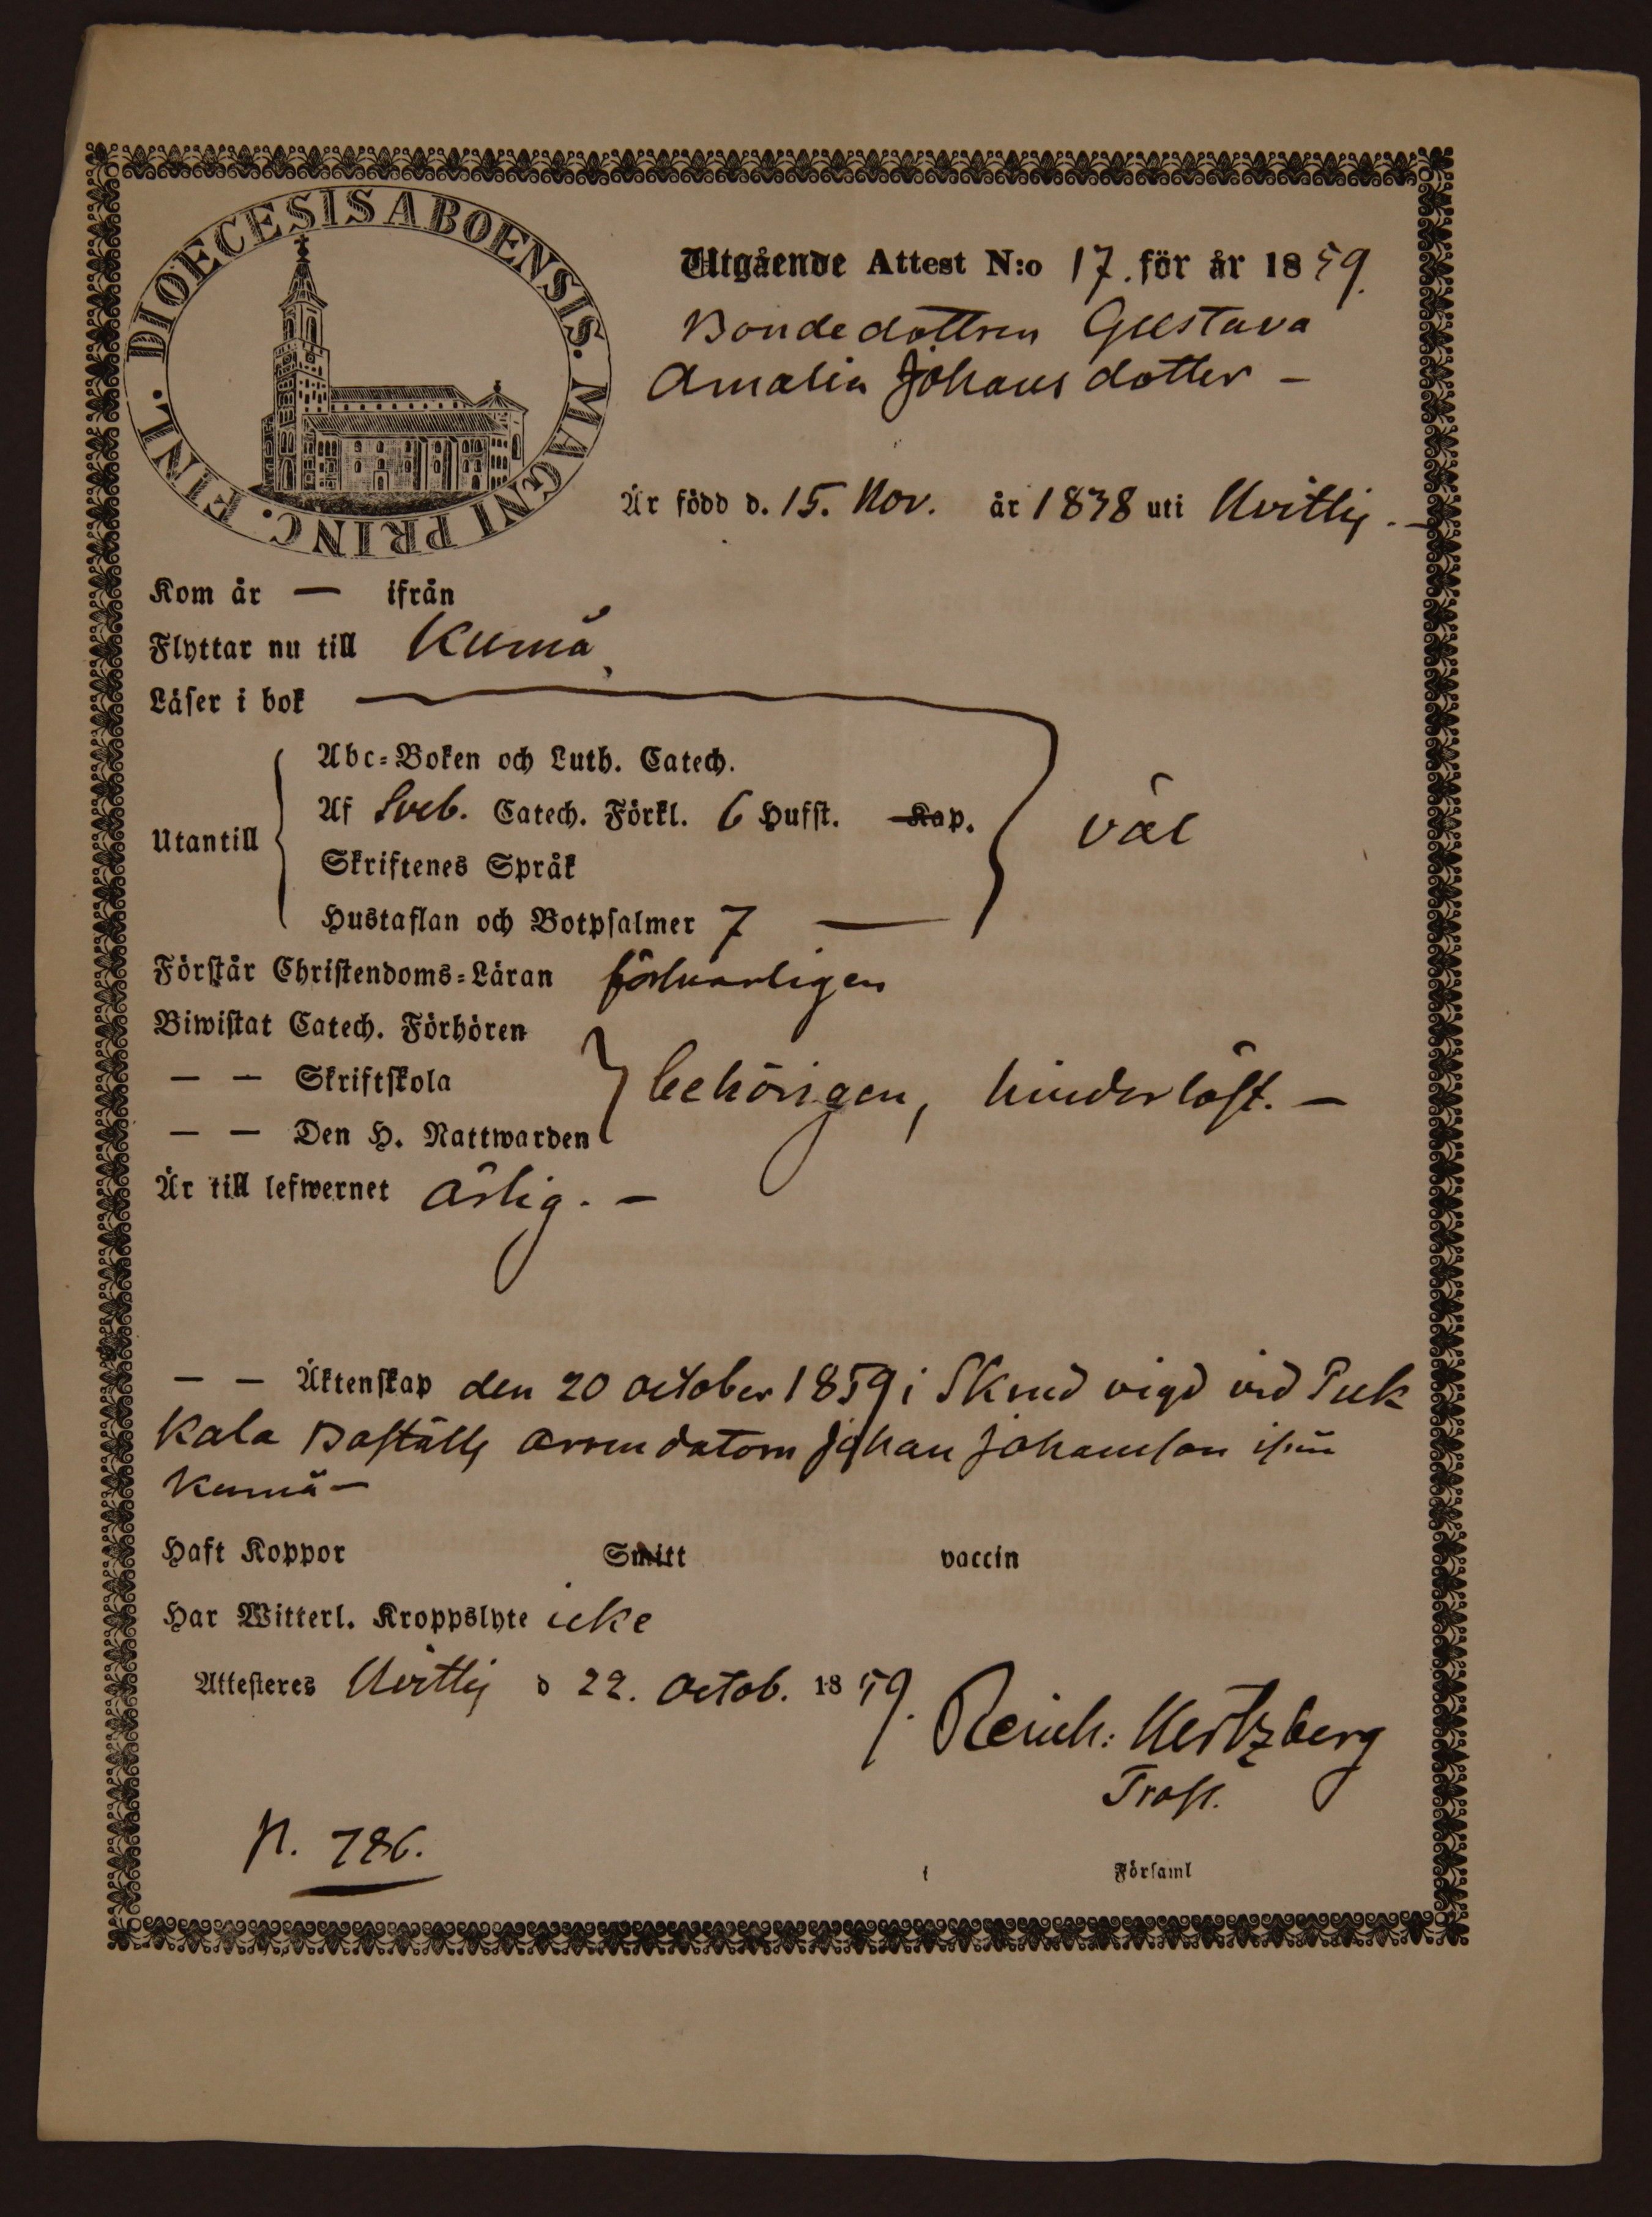 DIOECESIS ABOENSIS. MAGNI PRINC. FINL.
Utgående Attest N:o 17. för år 1859.
Bondedottren Gustava
Amalia Johans dotter –
Är född d. 15. Nov. år 1838 uti Hvittis. –
Kom år — ifrån
Flyttar nu till Kumå
Läser i bok
Abc-Boken och Luth. Catech.
Af Sveb. Catech. Förkl. 6 Hufst. Kap.
Utantill
väl
Skriftenes Språk
Hustaflan och Botpsalmer 7 —
Förstår Christendoms-Läran försvarligen
Biwistat Catech. Förhören
— — Skriftskola
behörigen, hinderlöst. –
— — Den H. Nattwarden
Är till lefwernet ärlig. –
— — Äktenskap den 20 october 1859 i vigd vid Puk
kala Boställs arrendatorn Johan Johansson ifrån
Kumå –
Haft Koppor Smitt vaccin
Har Witterl. Kroppslyte icke
Attesteres Hvittis d 22. Octob. 1859.
Hertzberg
Prost.
N. 786.
i Församl